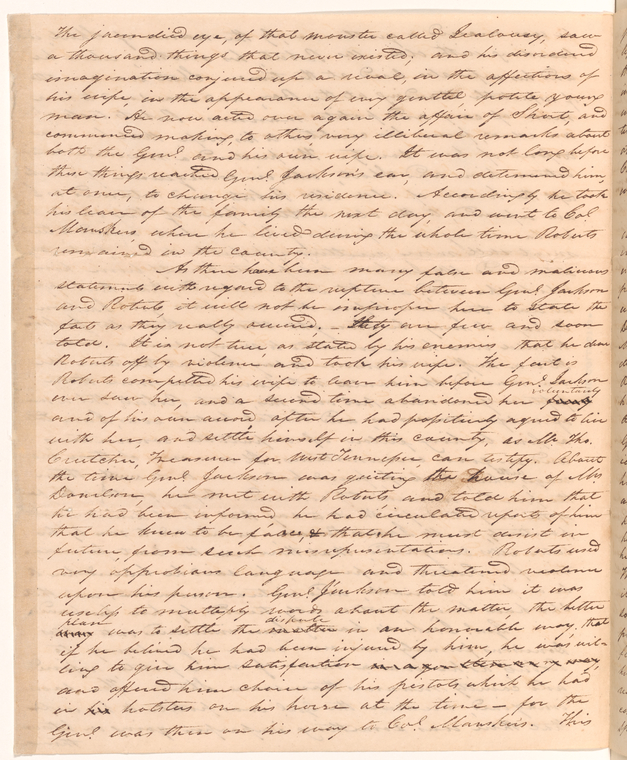 The jaundiced eye, of that monster called Jealousy, saw
a thousand things that never existed; and his disordered
imagination conjured up a rival, in the affections of
his wife, in the appearance of every genteel polite young
man. He now acted over again the affair of Short, and
commenced making, to others, very illiberal remarks about
both the Genl. and his own wife. It was not long before
these things reached Genl. Jackson's ear, and determined him,
at once, to change his residence. Accordingly he took
his leave of the family the next day, and went to Col
Manskers where he lived during the whole time Roberts
remained in the county.
As there have been many false and malicious
statements with regard to the rupture between Genl. Jackson
and Roberts, it will not be improper here to state the
facts as they really occurred. – They are few and soon
told. It is not true as stated by his enemies that he drove
Roberts off by violence and took his wife. The fact is
Roberts compelled his wife to leave him before Genl. Jackson
voluntarily
ever saw her, and a second time abandoned her
and of his own accord, after he had positively agreed to live
with her, and settle himself in this county, as Mr. Tho.
Crutcher, Treasurer for West Tennessee, can testify. About
the time Genl. Jackson was quitting the house of Mrs
Donelson, he met with Roberts and told him that
he had been informed he had circulated reports of him
that he knew to be false, & that he must desist in
future, from such misrepresentations. Roberts used
very opprobious language and threatened violence
upon his person. Genl. Jackson told him it was
useless to multiply words about the matter, the better
plan dispute
was to settle the matter in an honorable way, that
if he believed he had been injured by him, he was wil-
ling to give him satisfaction
and offered him choice of his pistols which he had
in his holsters on his horse at the time – for the
Genl. was then on his way to Col. Manskers. This